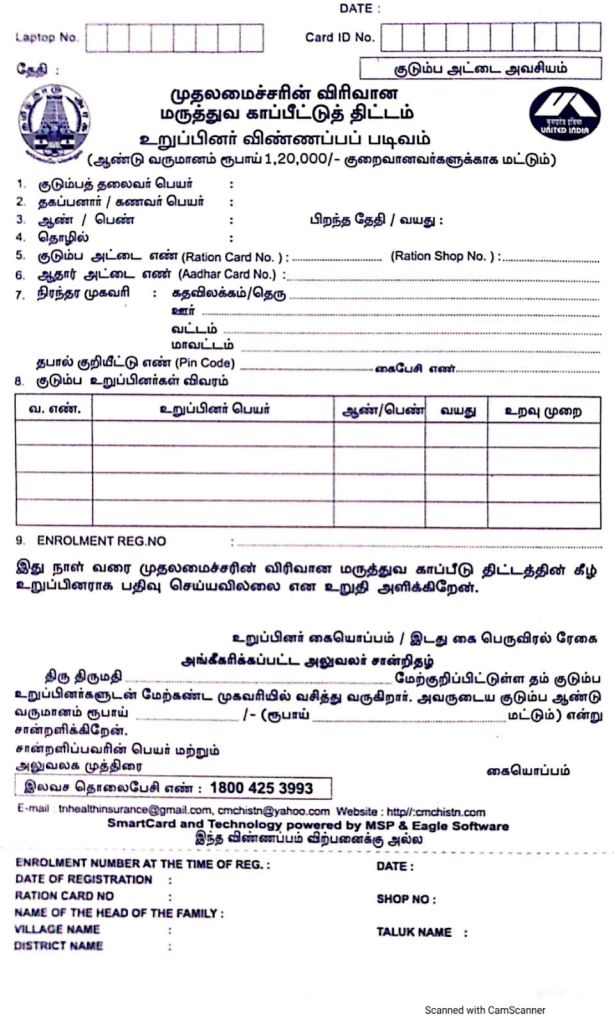 DATE :
Laptop No.
Card ID No.
தேதி :
குடும்ப அட்டை அவசியம்
முதலமைச்சரின் விரிவான
மருத்துவ காப்பீட்டுத் திட்டம்
உறுப்பினர் விண்ணப்பப் படிவம்
(ஆண்டு வருமானம் ரூபாய் 1,20,000/- குறைவானவர்களுக்காக மட்டும்)
UNITED INDIA
1. குடும்பத் தலைவர் பெயர் :
2. தகப்பனார் / கணவர் பெயர் :
3. ஆண் / பெண் : பிறந்த தேதி / வயது :
4. தொழில் :
5. குடும்ப அட்டை எண் (Ration Card No. ) : (Ration Shop No. ) :
6. ஆதார் அட்டை எண் (Aadhar Card No.) :
7. நிரந்தர முகவரி : கதவிலக்கம்/தெரு
ஊர்
வட்டம்
மாவட்டம்
தபால் குறியீட்டு எண் (Pin Code) கைபேசி எண்
8. குடும்ப உறுப்பினர்கள் விவரம்
வ. எண். உறுப்பினர் பெயர் ஆண்/பெண் வயது உறவு முறை
9. ENROLMENT REG.NO :
இது நாள் வரை முதலமைச்சரின் விரிவான மருத்துவ காப்பீடு திட்டத்தின் கீழ்
உறுப்பினராக பதிவு செய்யவில்லை என உறுதி அளிக்கிறேன்.
உறுப்பினர் கையொப்பம் / இடது கை பெருவிரல் ரேகை
அங்கீகரிக்கப்பட்ட அலுவலர் சான்றிதழ்
திரு திருமதி மேற்குறிப்பிட்டுள்ள தம் குடும்ப
உறுப்பினர்களுடன் மேற்கண்ட முகவரியில் வசித்து வருகிறார். அவருடைய குடும்ப ஆண்டு
வருமானம் ரூபாய் /- (ரூபாய் மட்டும்) என்று
சான்றளிக்கிறேன்.
சான்றளிப்பவரின் பெயர் மற்றும்
அலுவலக முத்திரை
கையொப்பம்
இலவச தொலைபேசி எண் : 1800 425 3993
E-mail : tnhealthinsurance@gmail.com, cmchistn@yahoo.com Website : http//:cmchistn.com
SmartCard and Technology powered by MSP & Eagle Software
இந்த விண்ணப்பம் விற்பனைக்கு அல்ல
ENROLMENT NUMBER AT THE TIME OF REG. : DATE :
DATE OF REGISTRATION :
RATION CARD NO : SHOP NO :
NAME OF THE HEAD OF THE FAMILY :
VILLAGE NAME : TALUK NAME :
DISTRICT NAME :
Scanned with CamScanner